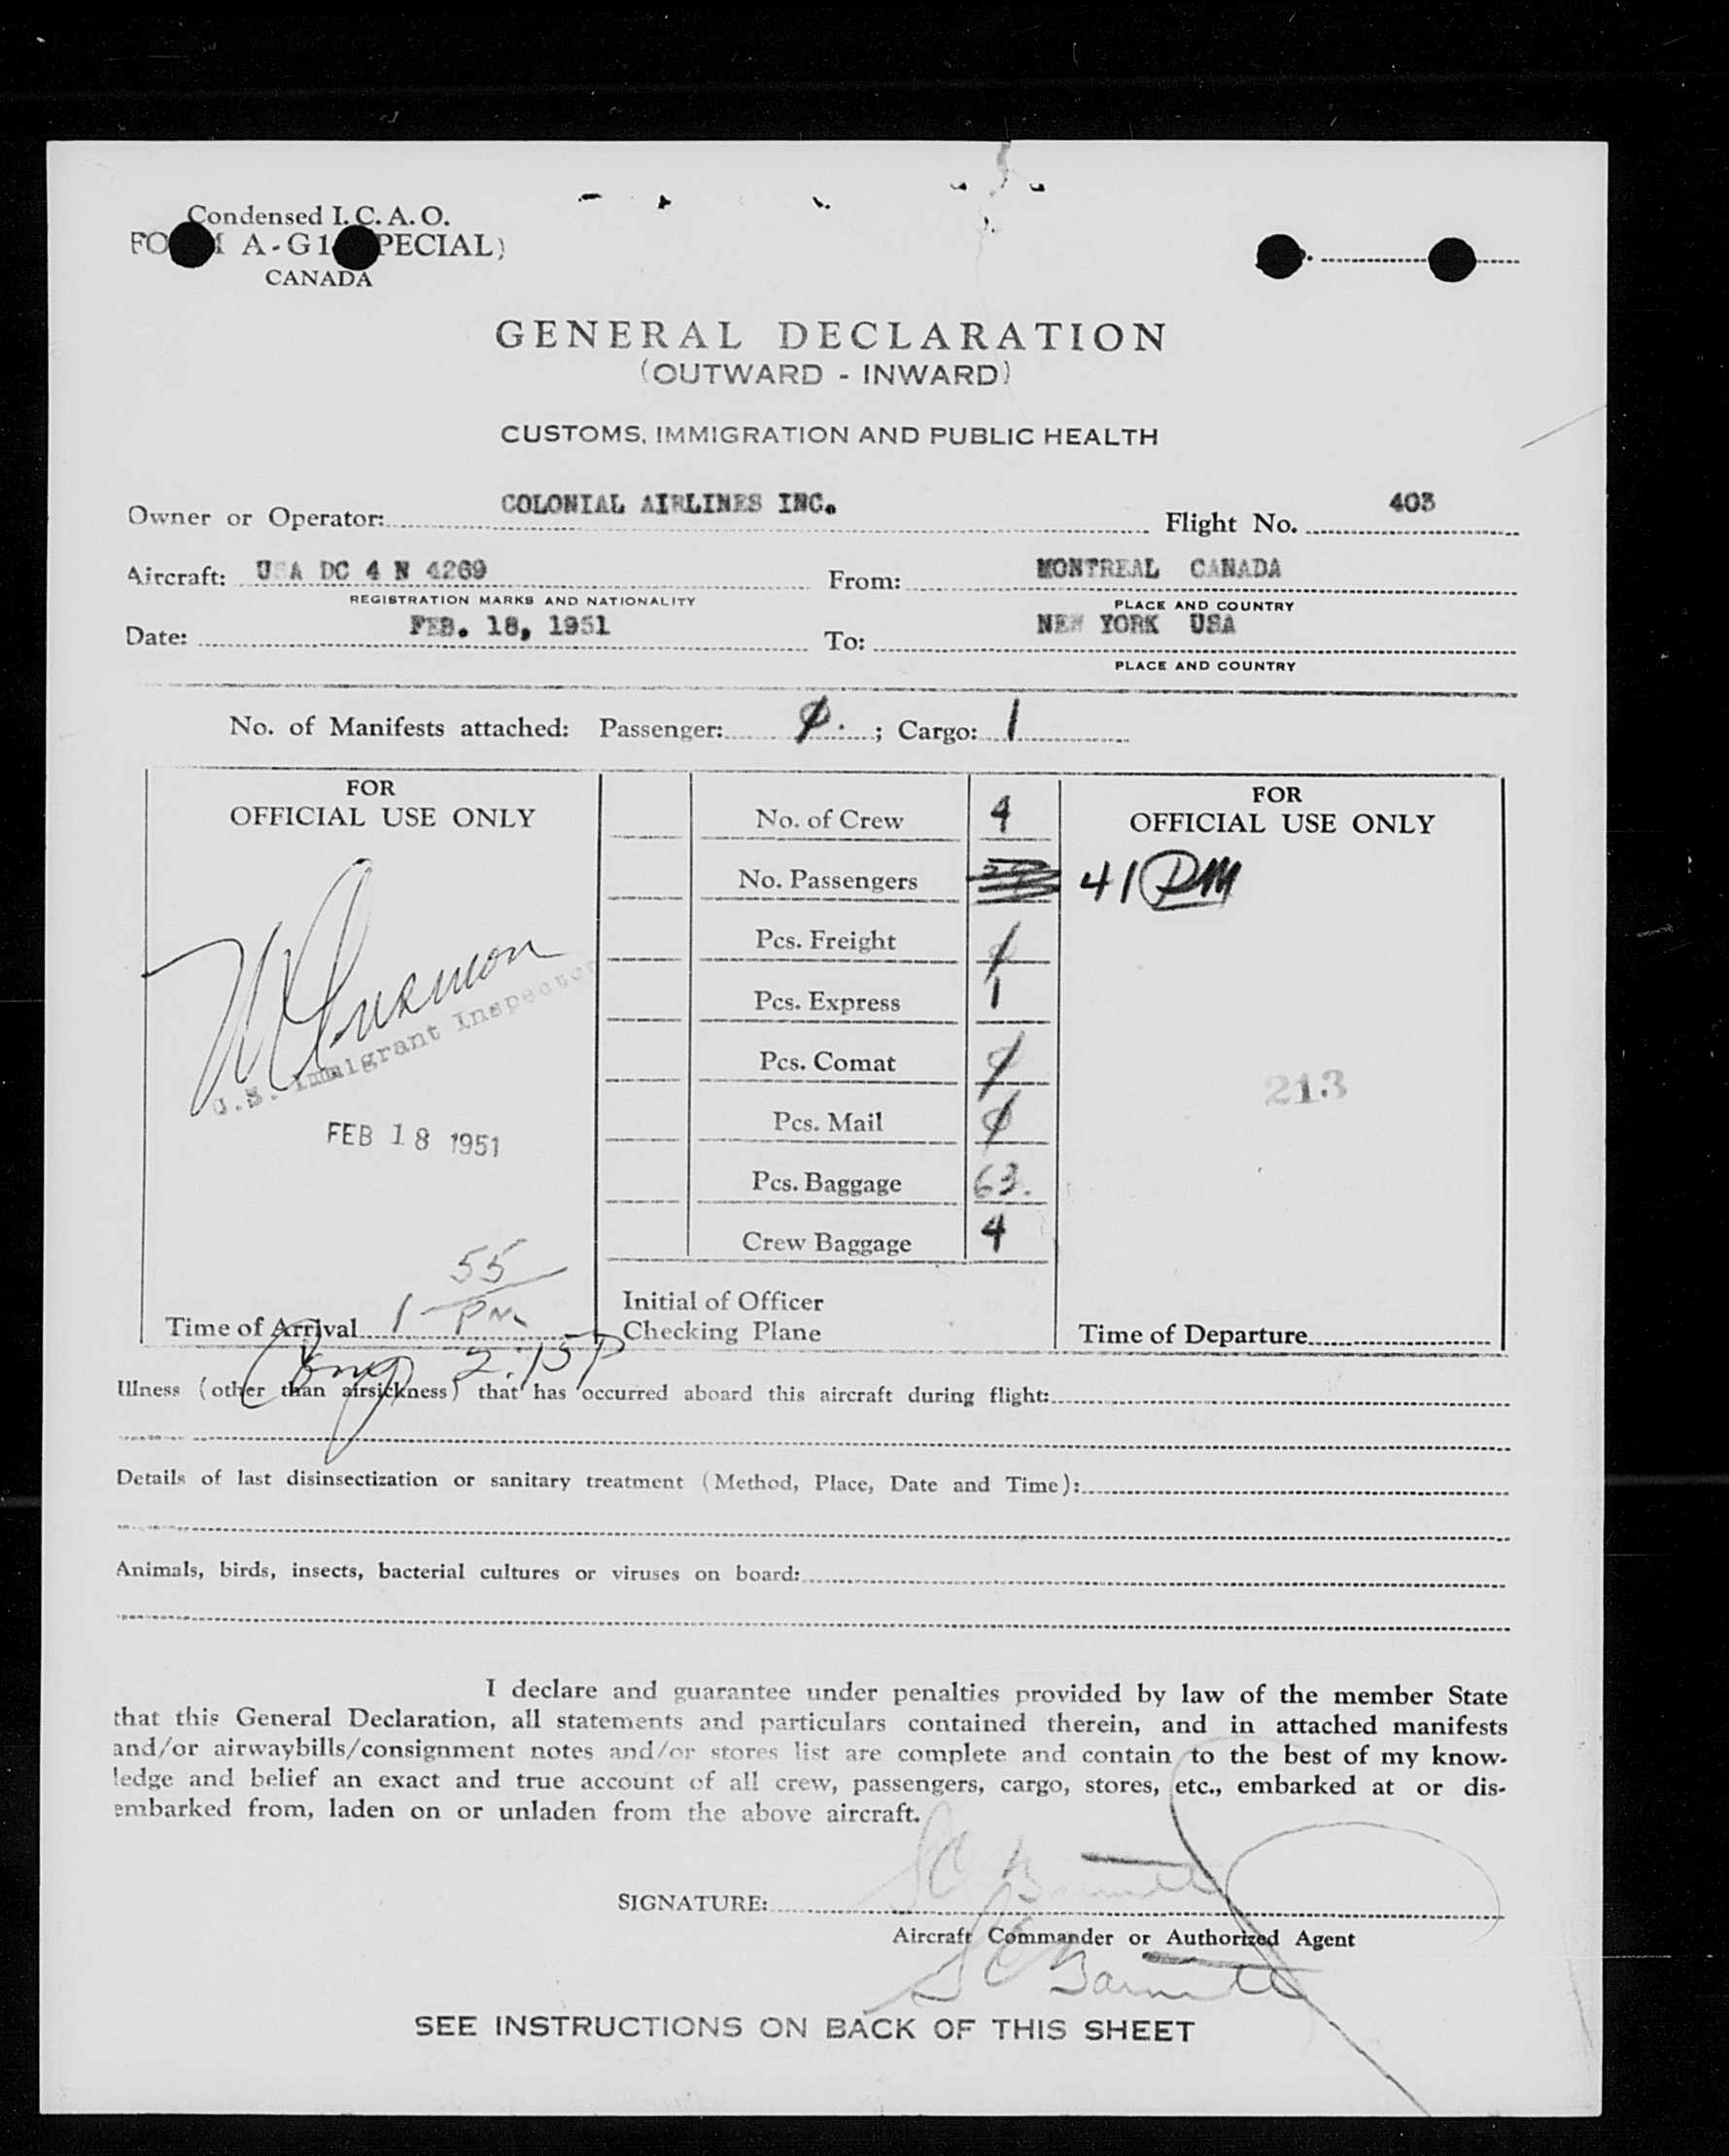 Condensed I. C. A. O.
FORM A-G1 (SPECIAL)
CANADA
GENERAL DECLARATION
(OUTWARD - INWARD)
CUSTOMS, IMMIGRATION AND PUBLIC HEALTH
Owner or Operator: COLONIAL AIRLINES INC. Flight No. 403
Aircraft: USA DC 4 N 4269 From: MONTREAL CANADA
REGISTRATION MARKS AND NATIONALITY PLACE AND COUNTRY
Date: FEB. 18, 1951 To: NEW YORK USA
PLACE AND COUNTRY
No. of Manifests attached: Passenger: 0. ; Cargo: 1
FOR
OFFICIAL USE ONLY
U.S. Immigrant Inspector
FEB 18 1951
55
Time of Arrival 1 PM
2:15 P
No. of Crew 4
No. Passengers
Pcs. Freight 0
Pcs. Express 1
Pcs. Comat 0
Pcs. Mail 0
Pcs. Baggage 63.
Crew Baggage 4
Initial of Officer
Checking Plane
FOR
OFFICIAL USE ONLY
41 PM
213
Time of Departure
Illness (other than airsickness) that has occurred aboard this aircraft during flight:
Details of last disinsectization or sanitary treatment (Method, Place, Date and Time):
Animals, birds, insects, bacterial cultures or viruses on board:
I declare and guarantee under penalties provided by law of the member State
that this General Declaration, all statements and particulars contained therein, and in attached manifests
and/or airwaybills/consignment notes and/or stores list are complete and contain to the best of my know-
ledge and belief an exact and true account of all crew, passengers, cargo, stores, etc., embarked at or dis-
embarked from, laden on or unladen from the above aircraft.
SIGNATURE:
Aircraft Commander or Authorized Agent
SEE INSTRUCTIONS ON BACK OF THIS SHEET